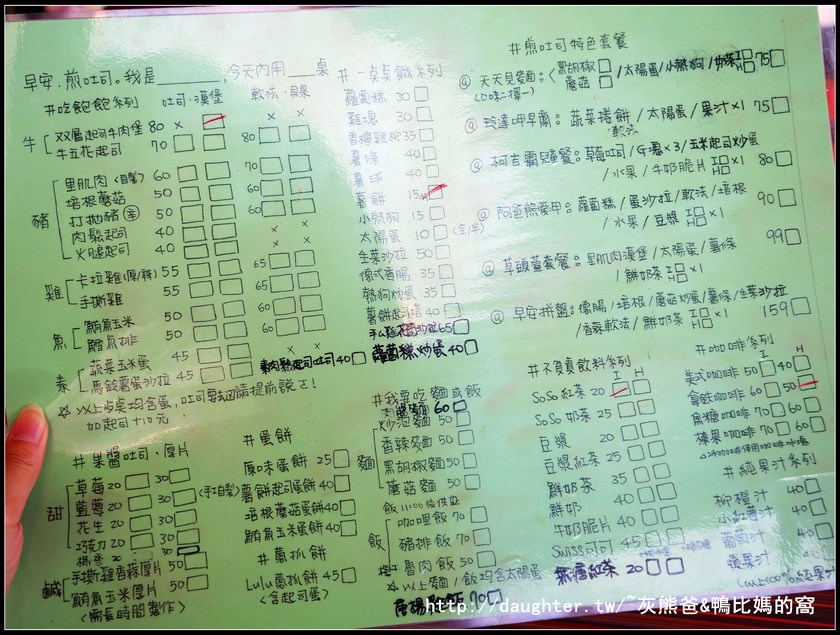 早安.煎吐司。我是______,今天內用___桌
#吃飽飽系列 吐司.漢堡 軟法.貝果
牛
双層起司牛肉堡 80 x
牛五花起司 70 80
豬
里肌肉(自製) 60 70
培根蘑菇 50 60
打拋豬(辛) 50 60
肉鬆起司 40 x x
火腿起司 40 x x
雞
卡拉雞(原/辣) 55 65
手撕雞 55 65
魚
鮪魚玉米 50 60
鱈魚排 50 60
素
蔬菜玉米蛋 45 x x
馬鈴薯蛋沙拉 45 素肉鬆起司吐司40
☆以上桌桌均含蛋,吐司要去邊請提前說ㄛ!
加起司+10元
#果醬吐司.厚片
甜
草莓20 30
藍莓20 30
花生20 30
巧克力20 30
鹹
手撕雞香蒜厚片50
鮪魚玉米厚片50
<需長時間製作>
#蛋餅
原味蛋餅 25
(手工自製)
薯餅起司蛋餅40
培根蘑菇蛋餅40
鮪魚玉米蛋餅40
#蔥抓餅
LuLu蔥抓餅45
<含起司蛋>
#一桌桌鹹系列
蘿蔔糕 30
雞塊 30
香檸雞柳35
薯條 40
薯球 40
薯餅 15
小熱狗 15
太陽蛋 10 (全/半)
生菜沙拉 50
德式香腸 35
熱狗炒蛋 35
薯餅起司培 40
65
蘿蔔糕炒蛋40
#我要吃麵或飯
60
麵
炒泡麵 50
香辣麵 50
黑胡椒麵50
蘑菇麵 50
飯 11:00後供應
飯
咖哩飯 70
豬排飯 70
魯肉飯 50
☆以上麵/飯均含太陽蛋
70
#煎吐司特色套餐
@ 天天見麵:<黑胡椒 蘑菇 /太陽蛋/小熱狗/奶茶 I H 75
(口味二擇一)
@ 玲達呷早齋:蔬菜捲餅/太陽蛋/果汁x1 75
@ 柯吉霸兒童餐:草莓吐司/G塊x3/玉米起司炒蛋
軟法
/水果/牛奶脆片 I H x1 80
@ 阿爸熊愛甲:蘿蔔糕/蛋沙拉/軟法/培根
/水果/豆漿 I H x1 90
@ 草頭萱套餐:里肌肉漢堡/太陽蛋/薯條
/鮮奶茶 I H x1 99
@ 早安拼盤:德腸/培根/蘑菇炒蛋/薯條/生菜沙拉
/香蒜軟法/鮮奶茶 I H x1 159
#不負責飲料系列
I H
SoSo紅茶 20
SoSo奶茶 25
豆漿 20
豆漿紅茶 25
鮮奶茶 35
鮮奶 40
牛奶脆片 40
Swiss可可 45
無糖紅茶 20
#咖啡系列
I H
美式咖啡 50 40
拿鐵咖啡 60 50
焦糖咖啡 70 60
榛果咖啡 70 60
△冰咖啡使用咖啡冰塊
#純果汁系列
柳橙汁 40
小紅莓汁 40
葡萄汁 40
蘋果汁 40
http://daughter.tw/~灰熊爸&鴨比媽的窩